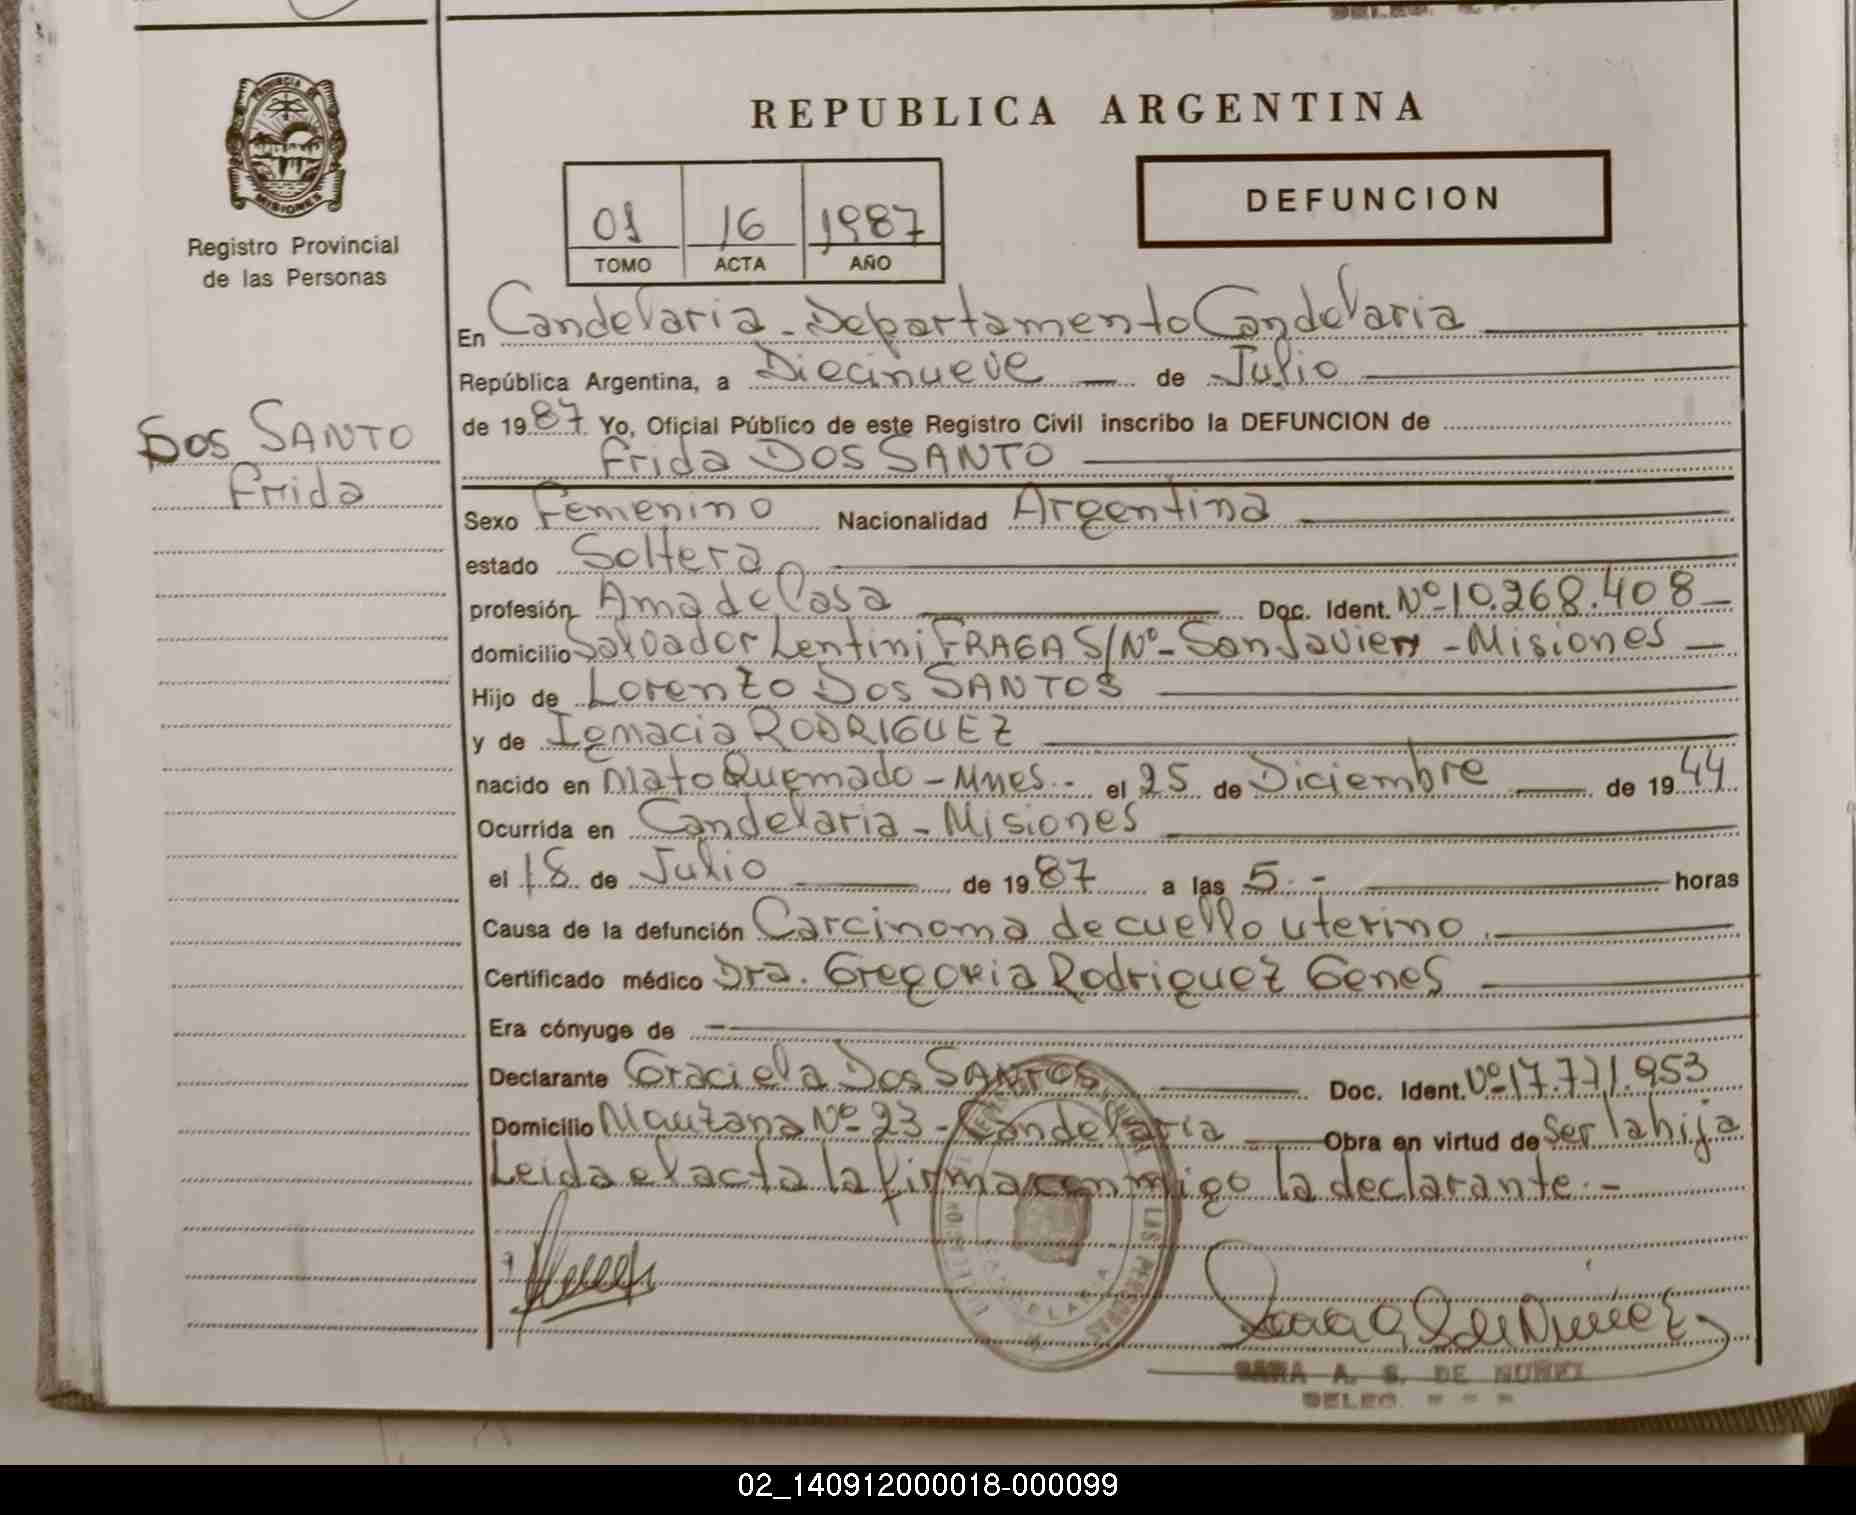 REPUBLICA ARGENTINA
PROVINCIA DE
MISIONES
Registro Provincial
de las Personas
01 16 1987
TOMO ACTA AÑO
DEFUNCION
En Candelaria - Departamento Candelaria
República Argentina, a Diecinueve de Julio
de 1987 Yo, Oficial Público de este Registro Civil inscribo la DEFUNCION de
Frida DOS SANTO
Dos SANTO
Frida
Sexo Femenino Nacionalidad Argentina
estado Soltera
profesión Ama de Casa Doc. Ident. Nº 10.268.408
domicilio Salvador Lentini FRAGA S/Nº - San Javier - Misiones
Hijo de Lorenzo Dos SANTOS
y de Ignacia RODRIGUEZ
nacido en Mato Quemado - Mnes. - el 25 de Diciembre de 1944
Ocurrida en Candelaria - Misiones
el 18 de Julio de 1987 a las 5. - horas
Causa de la defunción Carcinoma de cuello uterino.
Certificado médico Dra. Gregoria Rodriguez Genes
Era cónyuge de -
Declarante Graciela Dos SANTOS Doc. Ident. Nº 17.771.953
Domicilio Manzana Nº 23 - Candelaria Obra en virtud de ser la hija
Leida el acta la firma conmigo la declarante. -
SARA A. S. DE NUÑEZ
DELEG.
02_140912000018-000099